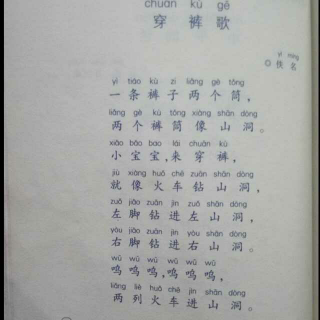 chuān kù gē
穿裤歌
yì míng
◎佚名
yì tiáo kù zi liǎng gè tǒng
一条裤子两个筒，
liǎng gè kù tǒng xiàng shān dòng
两个裤筒像山洞。
xiǎo bǎo bao lái chuān kù
小宝宝，来穿裤，
jiù xiàng huǒ chē zuān shān dòng
就像火车钻山洞，
zuǒ jiǎo zuān jìn zuǒ shān dòng
左脚钻进左山洞，
yòu jiǎo zuān jìn yòu shān dòng
右脚钻进右山洞。
wū wū wū wū wū wū
呜呜呜，呜呜呜，
liǎng liè huǒ chē jìn shān dòng
两列火车进山洞。